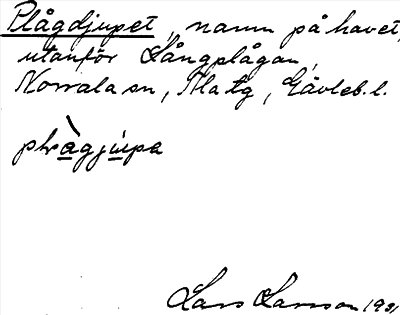 Plågdjupet, namn på havet,
utanför Långplågan,
Norrala sn, Ala tg, Gävleb. l.
Lars Larsson 1931